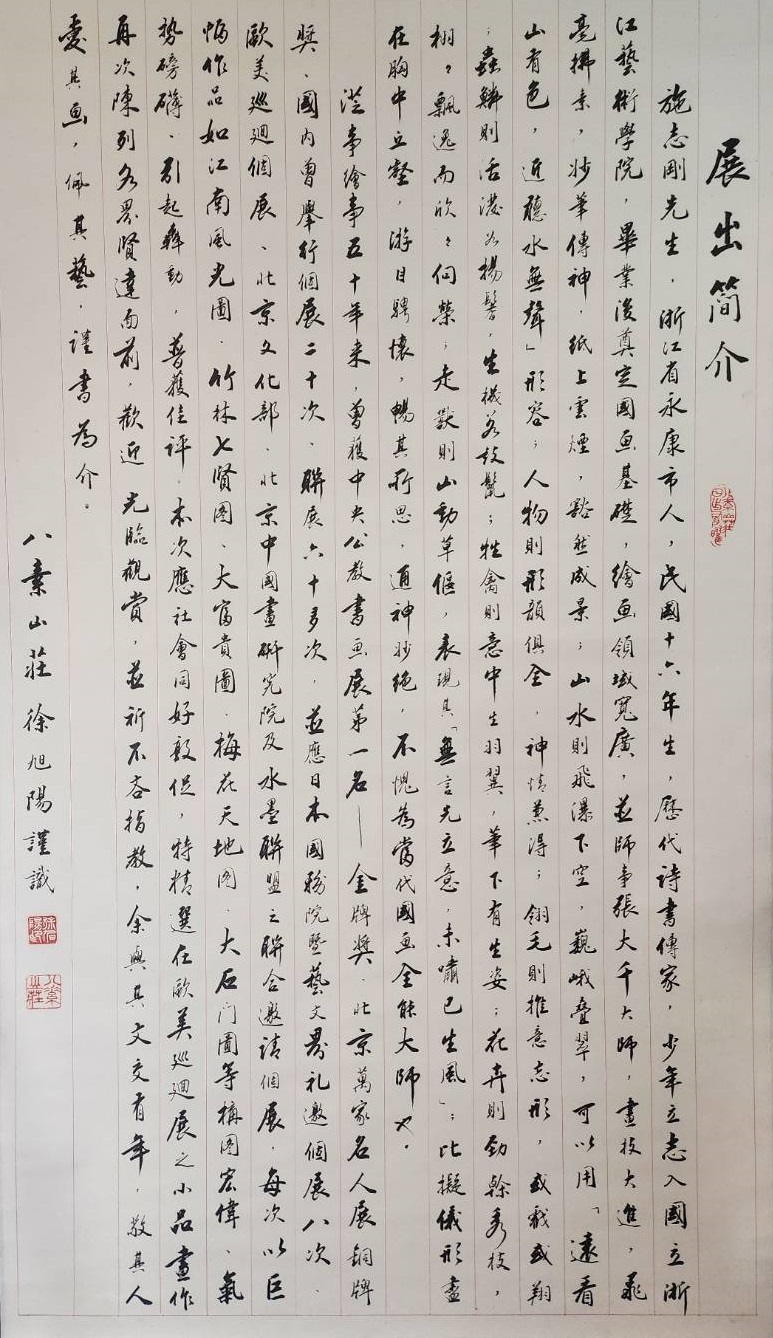 展出簡介
施志剛先生，浙江省永康市人，民國十六年生，歷代詩書傳家，少年立志入國立浙
江藝術學院，畢業後奠定國画基礎，繪画領域寬廣，並師事張大千大師，畫技大進，
亳拂素，妙筆傳神，紙上雲煙，豁然成景；山水則飛瀑下空，巍峨疊翠，可以用「遠看
山有色，近聽水無聲」形容；人物則形韻俱全，神情兼得；翎毛則推意志形，或戲或翔
；蟲鱗則活潑如揚鬐，生機若鼓鬣；牲禽則意中生羽翼，筆下有生姿；花卉則勁榦秀枝，
栩々飄逸而欣々向榮；走獸則山動草偃，表現其「無言先立意，未嘯已生風」；比擬儀形盡
在胸中丘壑，游目騁懷，暢其所思，通神妙絕，不愧為當代國画全能大師也。
從事繪事五十年來，曾獲中央公教書画展第一名——金牌獎、北京萬家名人展銅牌
獎、國內曾舉行個展二十次、聯展六十多次，並應日本國務院暨藝文界礼邀個展八次、
歐美巡迴個展、北京文化部、北京中國畫研究院及水墨聯盟之聯合邀請個展，每次以巨
幅作品如江南風光圖、竹林七賢图、大富貴圖、梅花天地图、大石门圖等構图宏偉、氣
勢磅礴，引起轟動，普獲佳評。本次應社會同好敦促，特精選在歐美巡迴展之小品畫作
再次陳列各界賢達面前，歡迎 光臨觀賞，並祈不吝指教，余與其文交有年，敬其人
愛其画，佩其藝，謹書為介。
八素山莊徐旭陽謹識